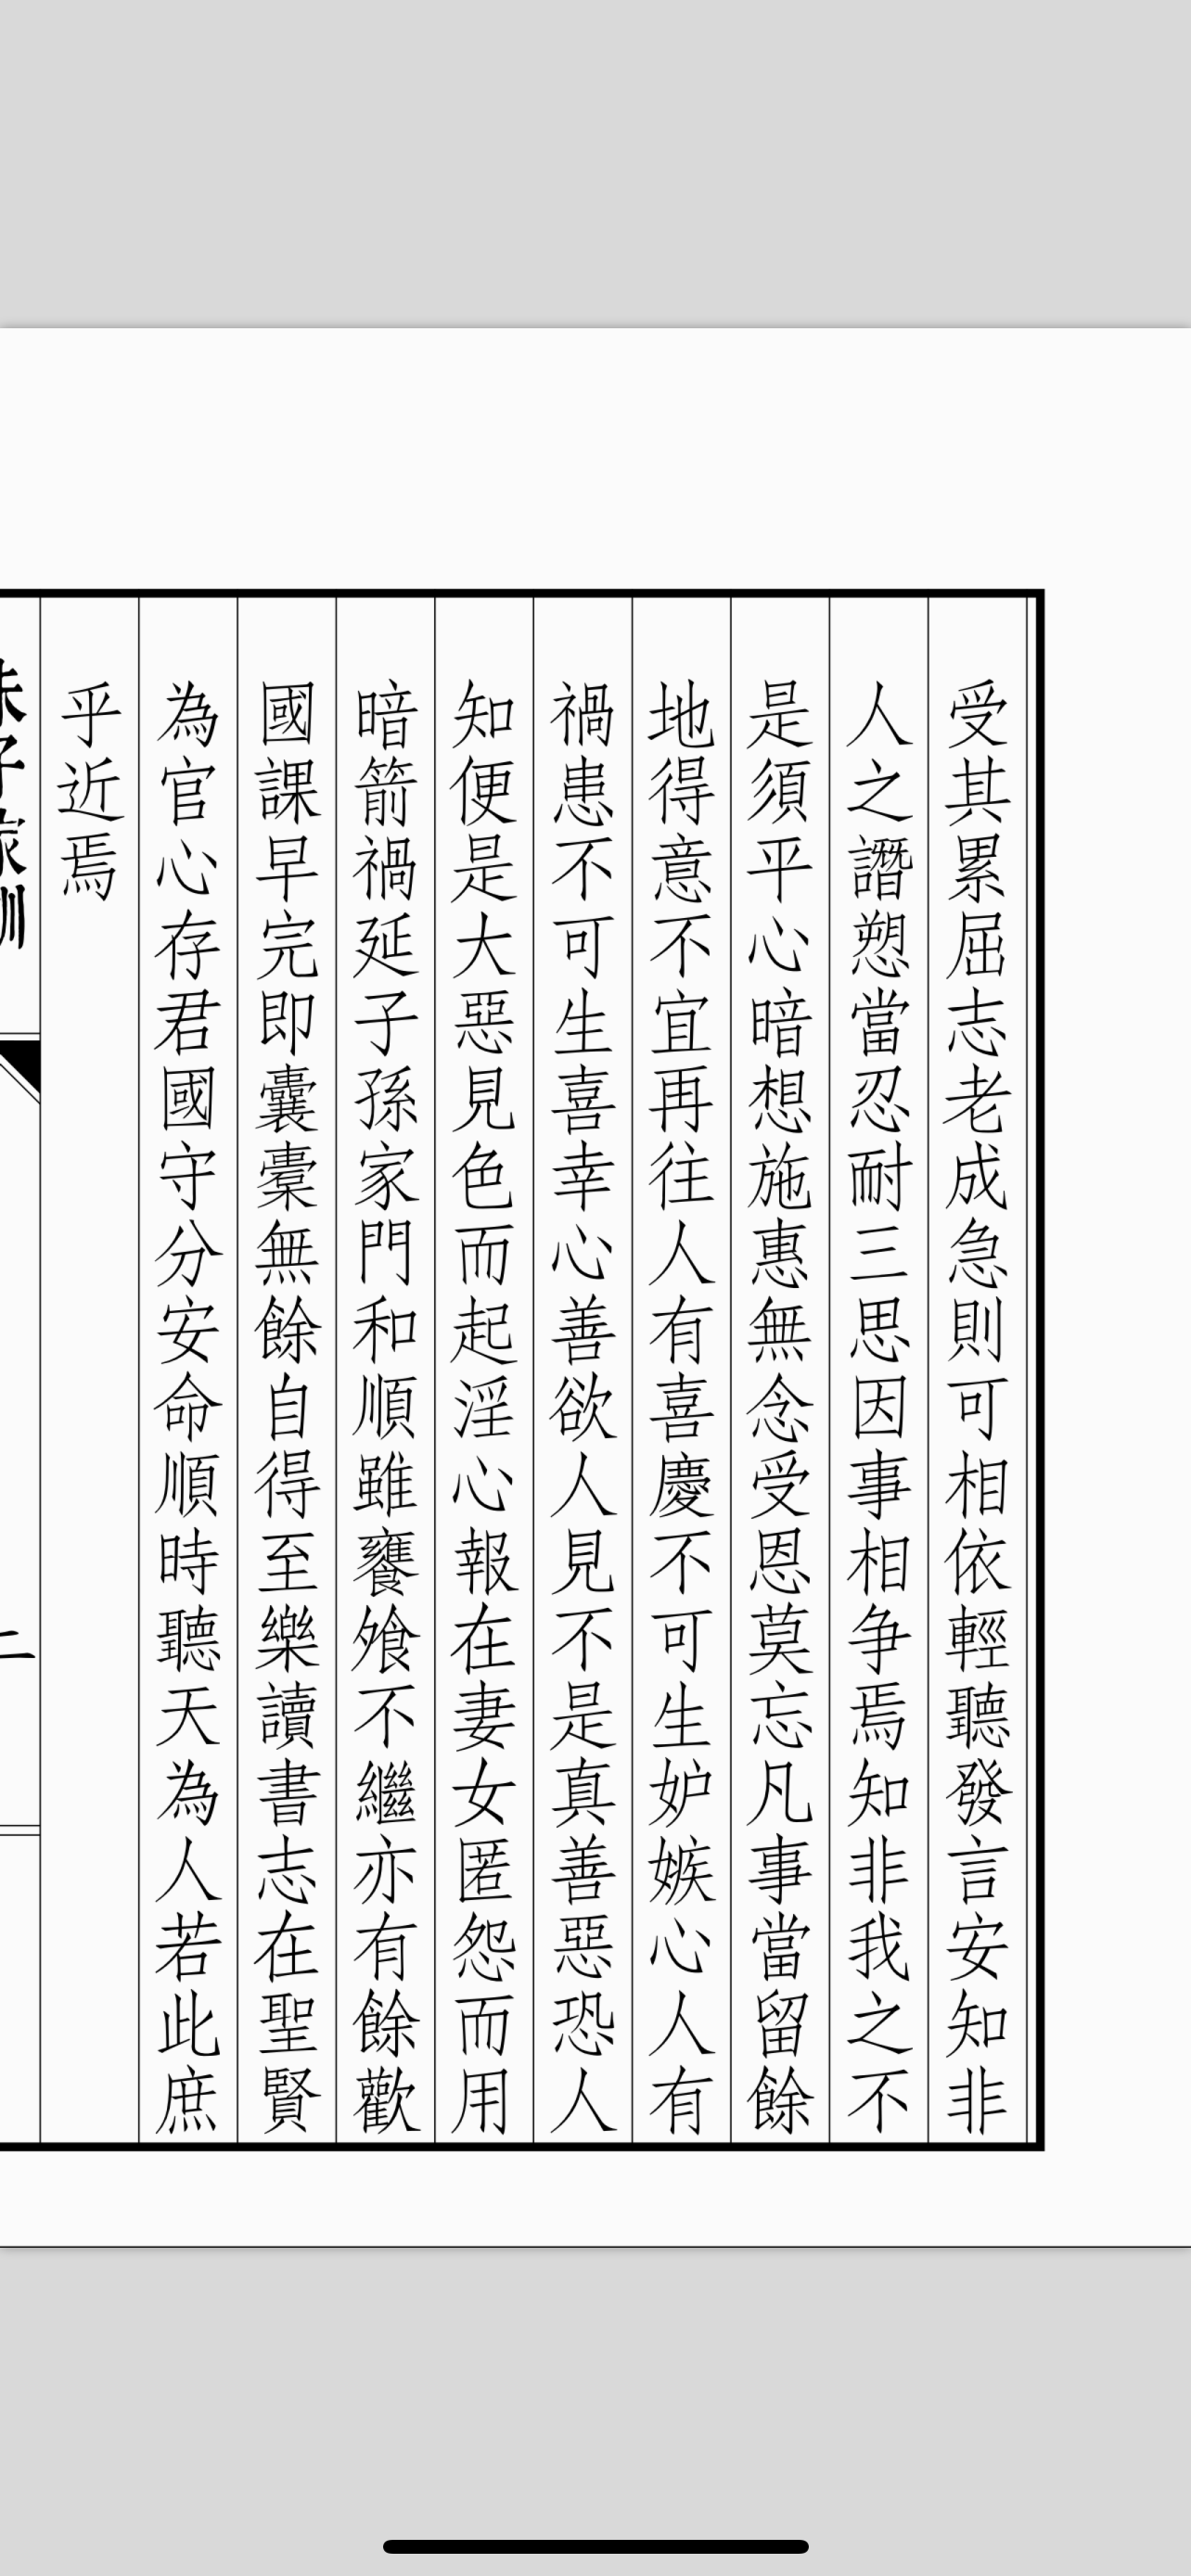 受其累屈志老成急則可相依輕聽發言安知非
人之譖愬當忍耐三思因事相争焉知非我之不
是須平心暗想施惠無念受恩莫忘凡事當留餘
地得意不宜再往人有喜慶不可生妒嫉心人有
禍患不可生喜幸心善欲人見不是真善惡恐人
知便是大惡見色而起淫心報在妻女匿怨而用
暗箭禍延子孫家門和順雖饔飧不繼亦有餘歡
國課早完即囊橐無餘自得至樂讀書志在聖賢
為官心存君國守分安命順時聽天為人若此庶
乎近焉
朱子家訓
二